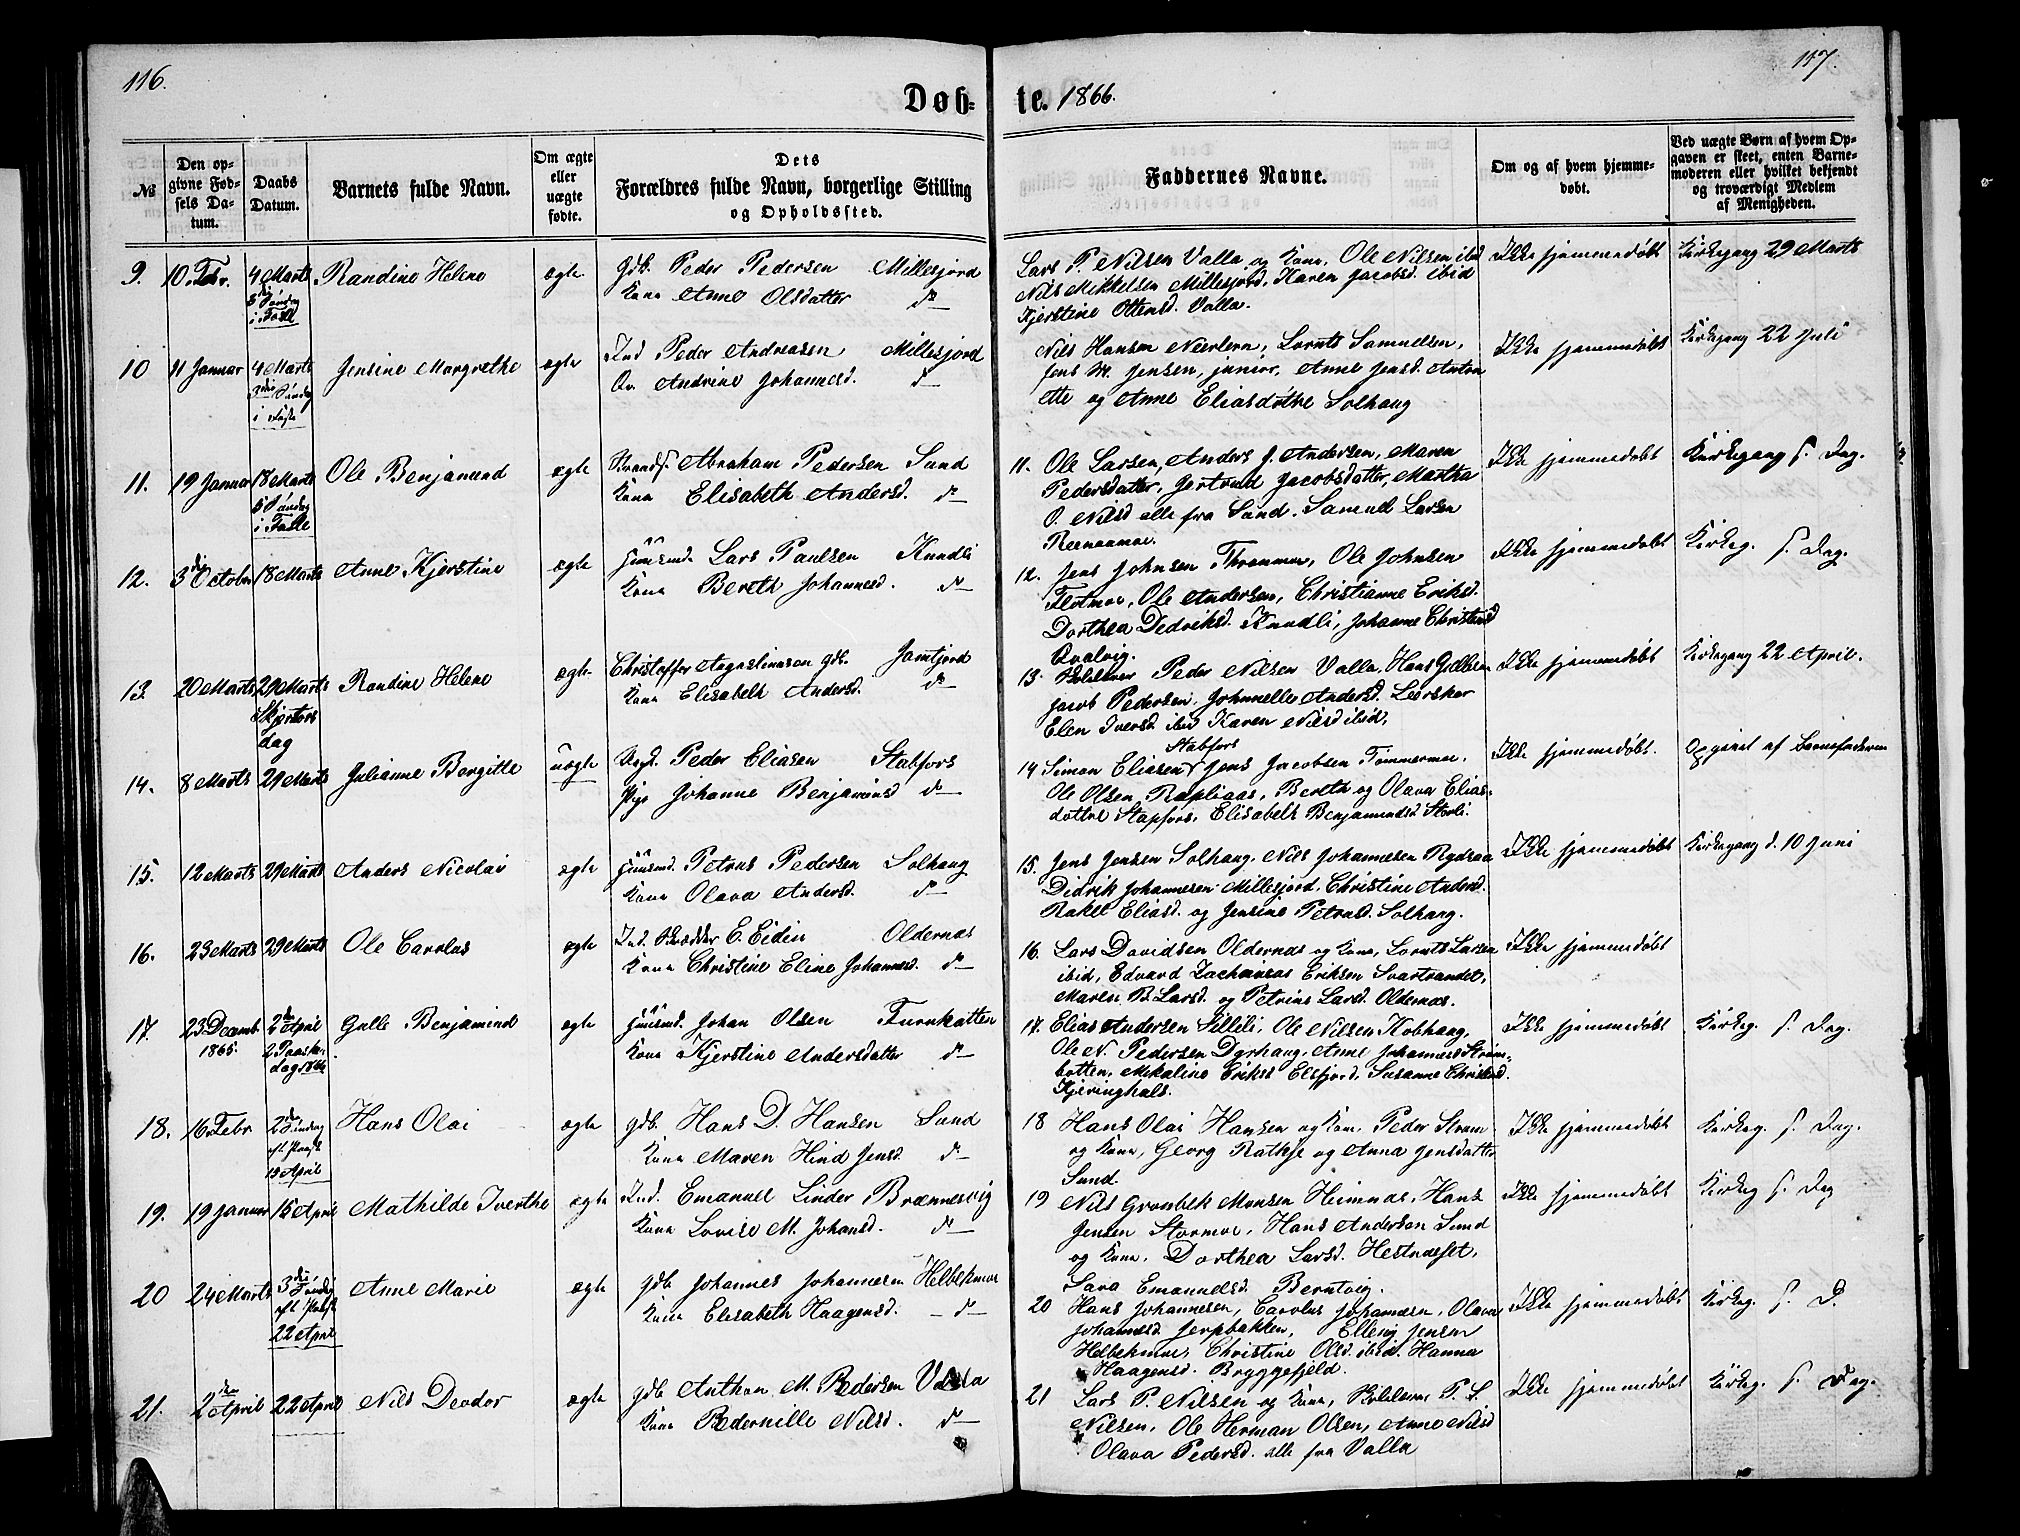 116.
117.
Døb-
te. 1866.
№
Den op-
givne Fød-
sels Da-
tum.
Daabs
Datum.
Barnets fulde Navn.
Om ægte
eller
uægte
fødte.
Dets
Forældres fulde Navn, borgerlige Stilling
og Opholdssted.
Faddernes Navne.
Om og af hvem hjemme-
døbt.
Ved uægte Børn af hvem Op-
gaven er skeet, enten Barne-
moderen eller hvilket bekjendt
og troværdigt Medlem
af Menigheden.
9. 10 Febr. 4 Marts Randine Helene ægte gdb. Peder Pedersen Millesjord
Kone Anne Olsdatter do
Søndag
i Faste
Lars P. Nilsen Valla og Kone, Ole Nilsen ibd
Nils Mikkelsen Millesjord, Karen Jacobsd. ibid
Kjerstine Ottensd. Valla.
Ikke hjemmedøbt
Kirkegang 29 Marts
10 11 Januar 4 Marts Jensine Margrethe ægte Ind Peder Andreasen Millesjord
Qv. Andrine Johannesd. do
3die Søndag
i Faste
Nils Hansen, Lornts Samuelsen,
Jens M. Jensen, junior, Anne Jensd. Anton
ette og Anne Eliasdøtre Solhaug
Ikke hjemmedøbt
Kirkegang 22 Juli
11. 19 Januar 18 Marts Ole Benjamend ægte Strands. Abraham Pedersen Sund
Kone Elisabeth Andersd. do
5 Søndag
i Faste
11. Ole Larsen, Anders J. Andersen, Maren
Pedersdatter, Jertrud Jacobsdatter, Martha
O. Nilsd alle fra Sund. Samuel Larsen
Ikke hjemmedøbt
Kirkegang s. Dag.
12. 3die October 18 Marts Anne Kjerstine ægte Huusmd. Lars Paulsen Kundli
Kone Bereth Johannesd. do
12. Jens Johnsen, Ole Johnsen
Flotmoe, Ole Andersen, Christianne Eriksd.
Dorthea Dedriksd. Kundli, Johanne Christensd
Qvalvig.
Ikke hjemmedøbt
Kirkeg. s. Dag.
13 20 Marts 29 Marts Randine Helene ægte Christoffer Augustinusen gdb. Jamtjord
Kone Elisabeth Andersd. do
Skjertors
dag
13. Peder Nilsen Valla, Hans
Jacob Pedersen, Johnnelle Andersd. Leerskar
Elen Iversd. ibid Karen Nilsd ibid.
Ikke hjemmedøbt
Kirkegang 22 April.
14. 8 Marts 29 Marts Julianne Bergitte uægte Ungk. Peder Eliasen Stabfors
Pige Johanne Benjaminsd do
Stabfors
14 Simon Eliasen, Jens Jacobsen Tømmermoe.
Ole Olsen Rapliaas, Bereth og Olava Elias-
døttre Stapfors, Elisabeth Benjamendsd Storli.
Ikke hjemmedøbt.
Opgivet af barnefaderen
15. 12 Marts 29 Marts Anders Nicolai ægte Huusmd. Petrus Pedersen Solhaug
Kone Olava Andersd. do
15. Jens Jensen Solhaug, Nils Johannesen Rydsaa
Didrik Johannesen Millesjord, Christine Andersd.
Rakel Eliasd. og Jensine Petrusd. Solhaug.
Ikke hjemmedøbt
Kirkegang d. 10 Juni
16. 23 Marts 29 Marts Ole Carolus ægte Ind. Skrædder E. Eidin Oldernæs
Kone Christine Eline Johannesd. do
16. Lars Davidsen Oldernæs og Kone, Lornts Larsen
ibid, Edvard Zachariasen Eriksen Svartvandet,
Maren B. Larsd. og Petrine Larsd. Oldernæs.
Ikke hjemmedøbt
17. 23 Decemb. 2den April Gulle Benjamind ægte Huusmd. Johan Olsen Furukatten
1865. 2 Paaske-
dag 1866
Kone Kjerstine Andersdatter do
17. Elias Andersen Lillili, Ole Nilsen Kobhaug,
Ole N. Pedersen Dyrhaug, Anne Johannesd Strøm-
botten, Mekaline Eriksd Elsfjord, Susanne Christensd.
Kjeringhals.
Ikke hjemmedøbt
Kirkeg. s. Dag.
18. 16 Febr 2den Søndag Hans Olai ægte gdb. Hans D. Hansen Sund
eft. Paaske
15 April
Kone Maren Hind Jensd. do
18 Hans Olai Hansen og Kone Peder Strøm
og Kone, Georg Rathje og Anna Jensdatter
Sund.
Ikke hjemmedøbt
Kirkeg. s. Dag.
19. 19 Januar 15 April Mathilde Iverthe ægte Ind. Emanuel Linder Brennesvig
Kone Lovise M. Johansd. do
19 Nils Grønbek Monsen Heimnæs, Hans
Jensen Stormoe, Hans Andersen Sund
og Kone, Dorthea Larsd. Hestnæset,
Sara Emanuelsd. Berntvig.
Ikke hjemmedøbt
Kirkeg s. Dag
20 24 Marts 3die Søndag Anne Marie ægte gdb. Johannes Johannesen Helbekmoe
eft. Paaske
22 April
Kone Elisabeth Haagensd. do
20 Hans Johannesen, Carolus Johannesen, Olava
Johannesd Jerpbakken, Elling Jensen
Helbekmoe, Christine Olsd. ibid. Hanna
Haagensd. Bryggefjeld.
Ikke hjemmedøbt
Kirkeg. s. D.
21. 2den April 22 April Nils Deodor ægte gdb Anthon M. Pedersen Valla
Kone Pedernille Nilsd. do
21 Lars P. Nilsen og Kone, P. L.
Nilsen, Ole Herman Olsen, Anne Nilsd
Olava Pedersd. alle fra Valla
Ikke hjemmedøbt
Kirkeg. s. Dag.